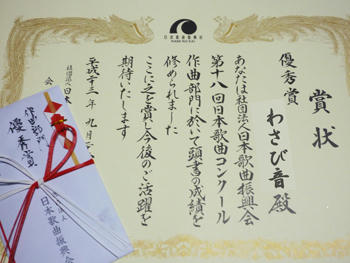 賞状
優秀賞
わさび音殿
あなたは社団法人日本歌曲振興会
第十八回日本歌曲コンクール
作曲部門に於いて頭書の成績を
修められました
ここに之を賞し今後のご活躍を
期待いたします
平成十三年九月
作曲部門
優秀賞
日本歌曲振興会